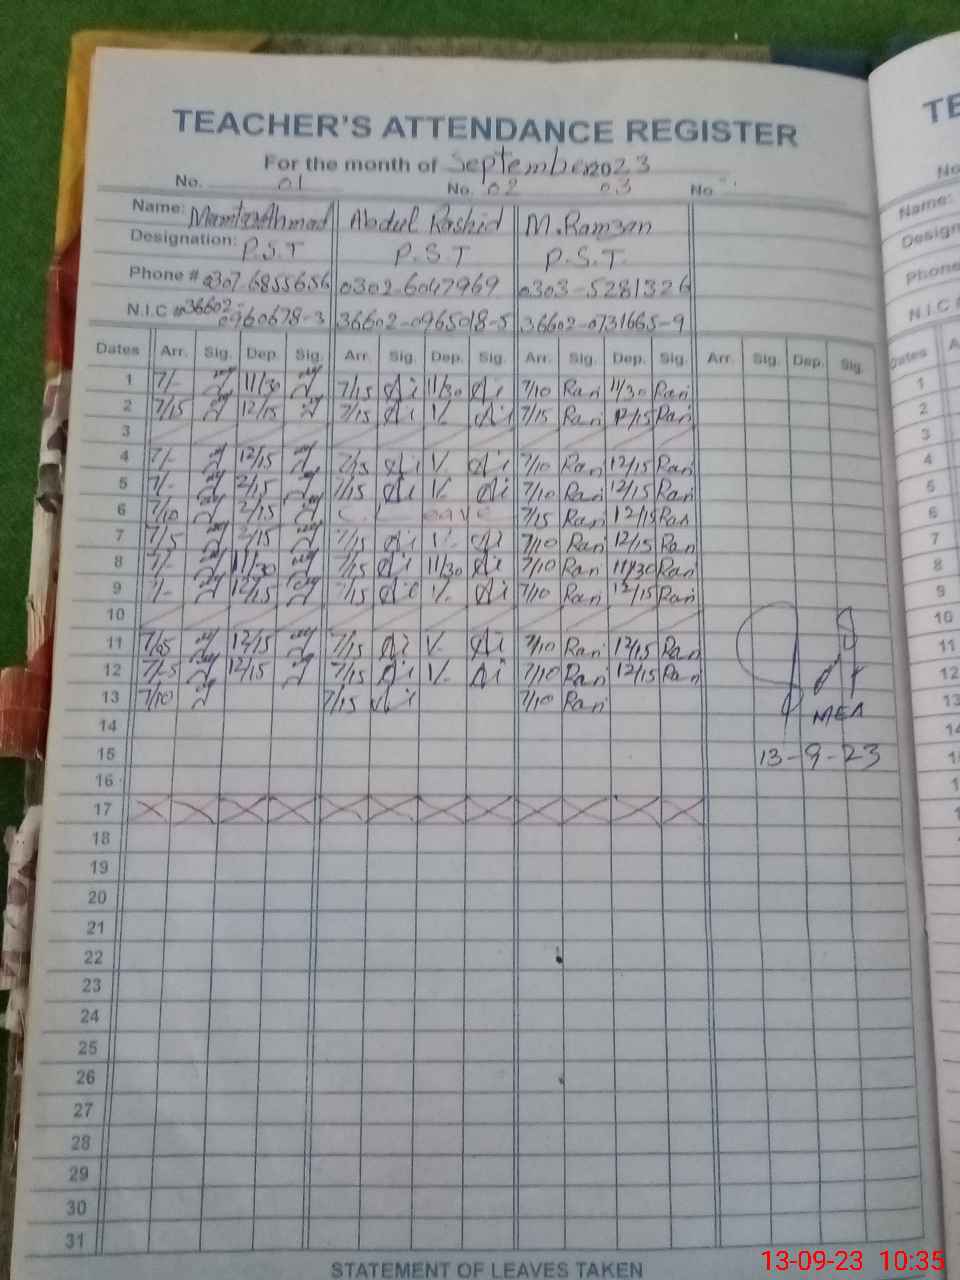 TEACHER'S ATTENDANCE REGISTER
For the month of September 2023
No. 01 No. 02 03 No.
Name: Mumtaz Ahmad Abdul Rashid M. Ramzan
Designation: P.S.T P.S.T P.S.T.
Phone # 0307-6855656 0302-6047969 0303-5281326
N.I.C # 36602-0960678-3 36602-0965018-5 36602-0731665-9
Dates Arr. Sig. Dep. Sig. Arr. Sig. Dep. Sig. Arr. Sig. Dep. Sig. Arr. Sig. Dep. Sig.
1 7/- 11/30 7/15 11/30 7/10 Ran 11/30 Ran
2 7/15 12/15 7/15 1/- 7/15 Ran 12/15 Ran
3
4 7/- 12/15 7/15 1/- 7/10 Ran 12/15 Ran
5 7/- 12/15 7/15 1/- 7/10 Ran 12/15 Ran
6 7/10 12/15 C.L Leave 7/15 Ran 12/15 Ran
7 7/5 12/15 7/15 1/- 7/10 Ran 12/15 Ran
8 7/- 11/30 7/15 11/30 7/10 Ran 11/30 Ran
9 7/- 12/15 7/15 1/- 7/10 Ran 12/15 Ran
10
11 7/05 12/15 7/15 1/- 7/10 Ran 12/15 Ran
12 7/-5 12/15 7/15 1/- 7/10 Ran 12/15 Ran
13 7/10 7/15 7/10 Ran
MEA
14
15 13-9-23
16
17
18
19
20
21
22
23
24
25
26
27
28
29
30
31
STATEMENT OF LEAVES TAKEN
TE
No
Name:
Design
Phone
N.I.C
Dates A
1
2
3
4
5
6
7
8
9
10
11
12
13
13-09-23 10:35